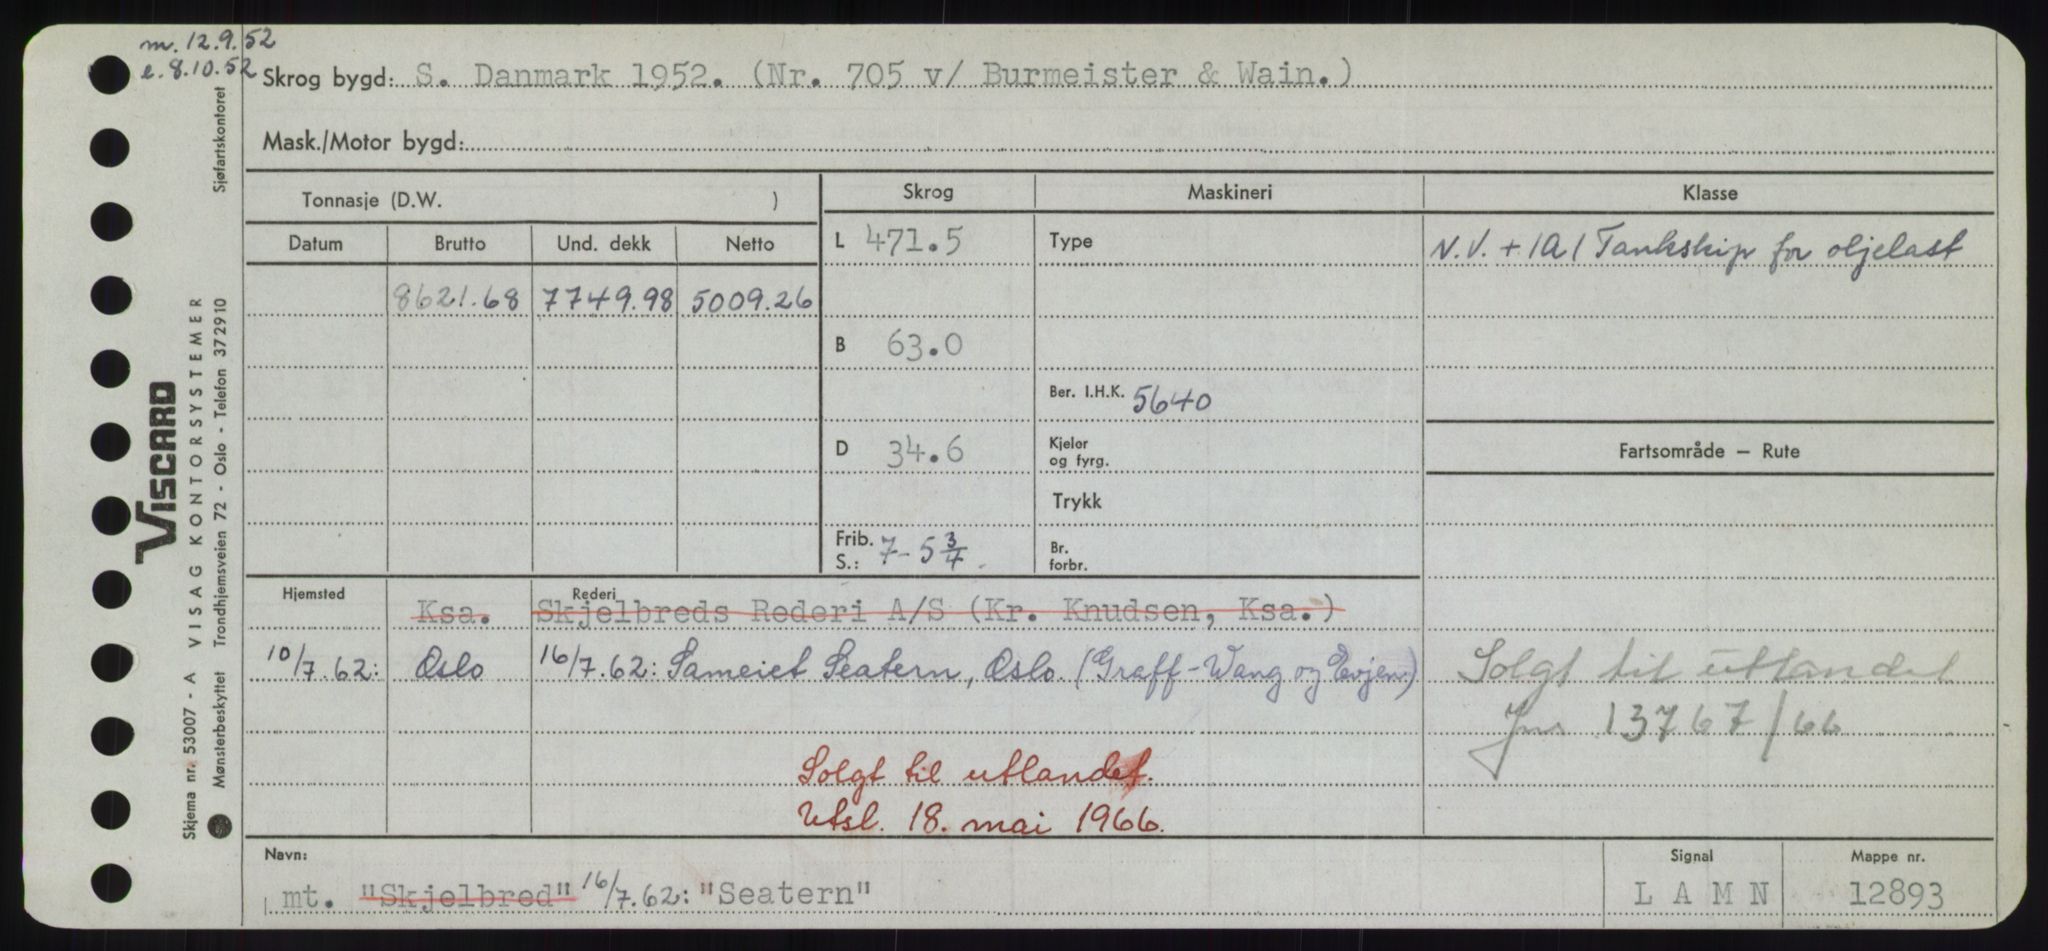 m. 12.9.52
e. 8.10.52
Skrog bygd: S. Danmark 1952. (Nr. 705 v/ Burmeister & Wain.)
Mask./Motor bygd:
Tonnasje (D.W. )
Skrog
Maskineri
Klasse
Datum
Brutto
Und. dekk
Netto
L 471.5
Type
N.V. + 1A1 Tankskip for oljelast
8621.68
7749.98
5009.26
B 63.0
Ber. I.H.K. 5640
D 34.6
Kjeler
og fyrg.
Fartsområde — Rute
Trykk
Frib.
S.: 7-5 3/4
Br.
forbr.
Hjemsted
Rederi
Ksa.
Skjelbreds Rederi A/S (Kr. Knudsen, Ksa.)
10/7.62: Oslo
16/7.62: Sameiet Seatern, Oslo. (Graff-Wang og Evjen)
Solgt til utlandet
Jnr 13767/66
Solgt til utlandet.
Utsl. 18. mai 1966.
Navn:
mt. "Skjelbred" 16/7.62: "Seatern"
Signal
LAMN
Mappe nr.
12893
VISCARD
Skjema nr. 53007 - A VISAG KONTORSYSTEMER
Mønsterbeskyttet Trondhjemsveien 72 - Oslo - Telefon 372910 Sjøfartskontoret